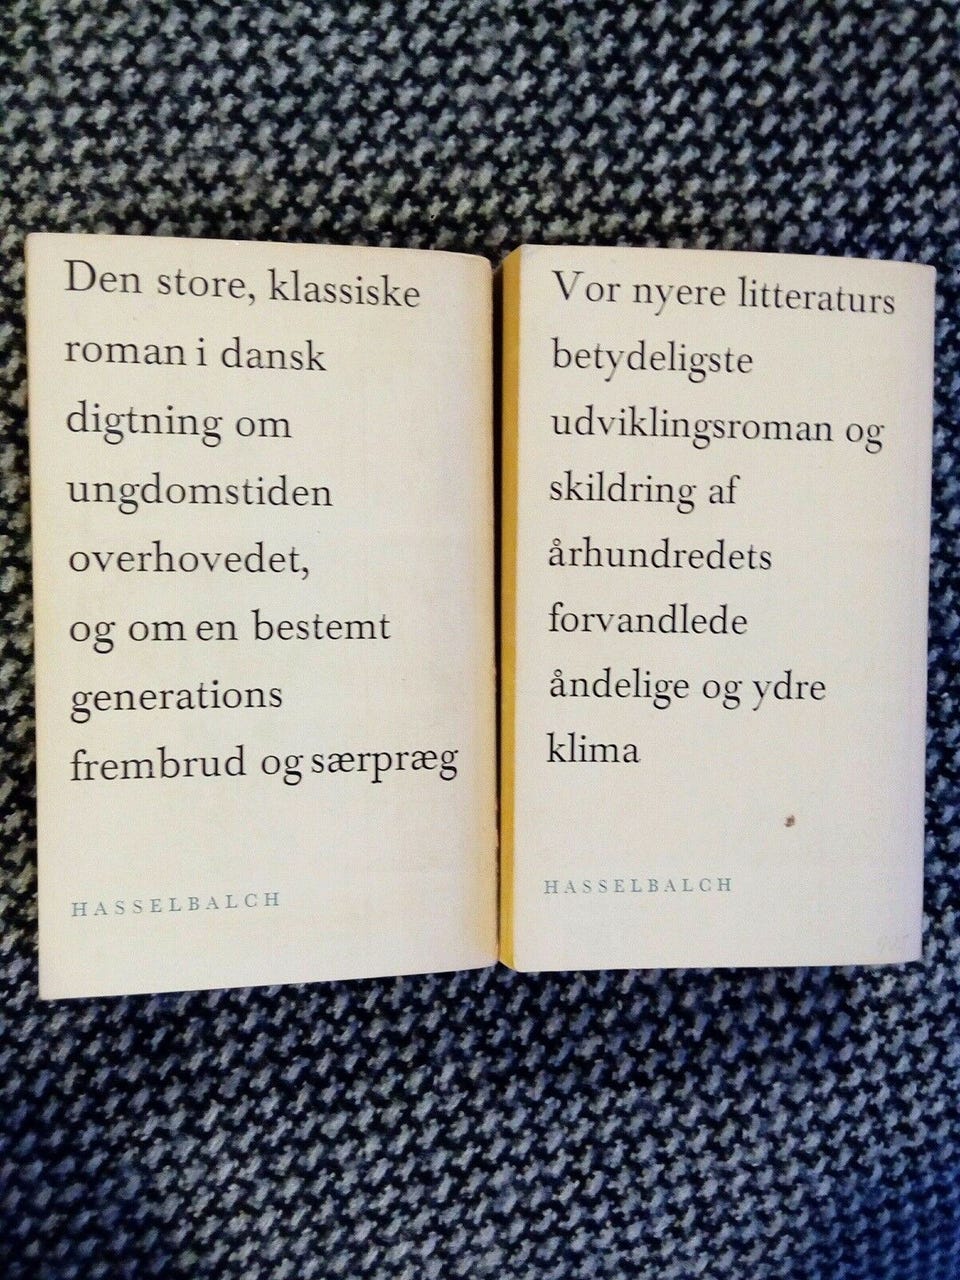 Den store, klassiske
roman i dansk
digtning om
ungdomstiden
overhovedet,
og om en bestemt
generations
frembrud og særpræg
HASSELBALCH
Vor nyere litteraturs
betydeligste
udviklingsroman og
skildring af
århundredets
forvandlede
åndelige og ydre
klima
HASSELBALCH